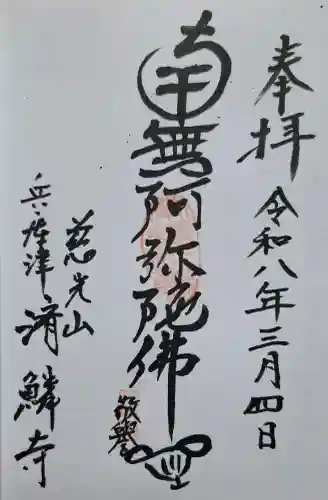 奉拝
令和八年三月四日
南無阿弥陀佛
敬譽
慈光山
兵庫津
済鱗寺